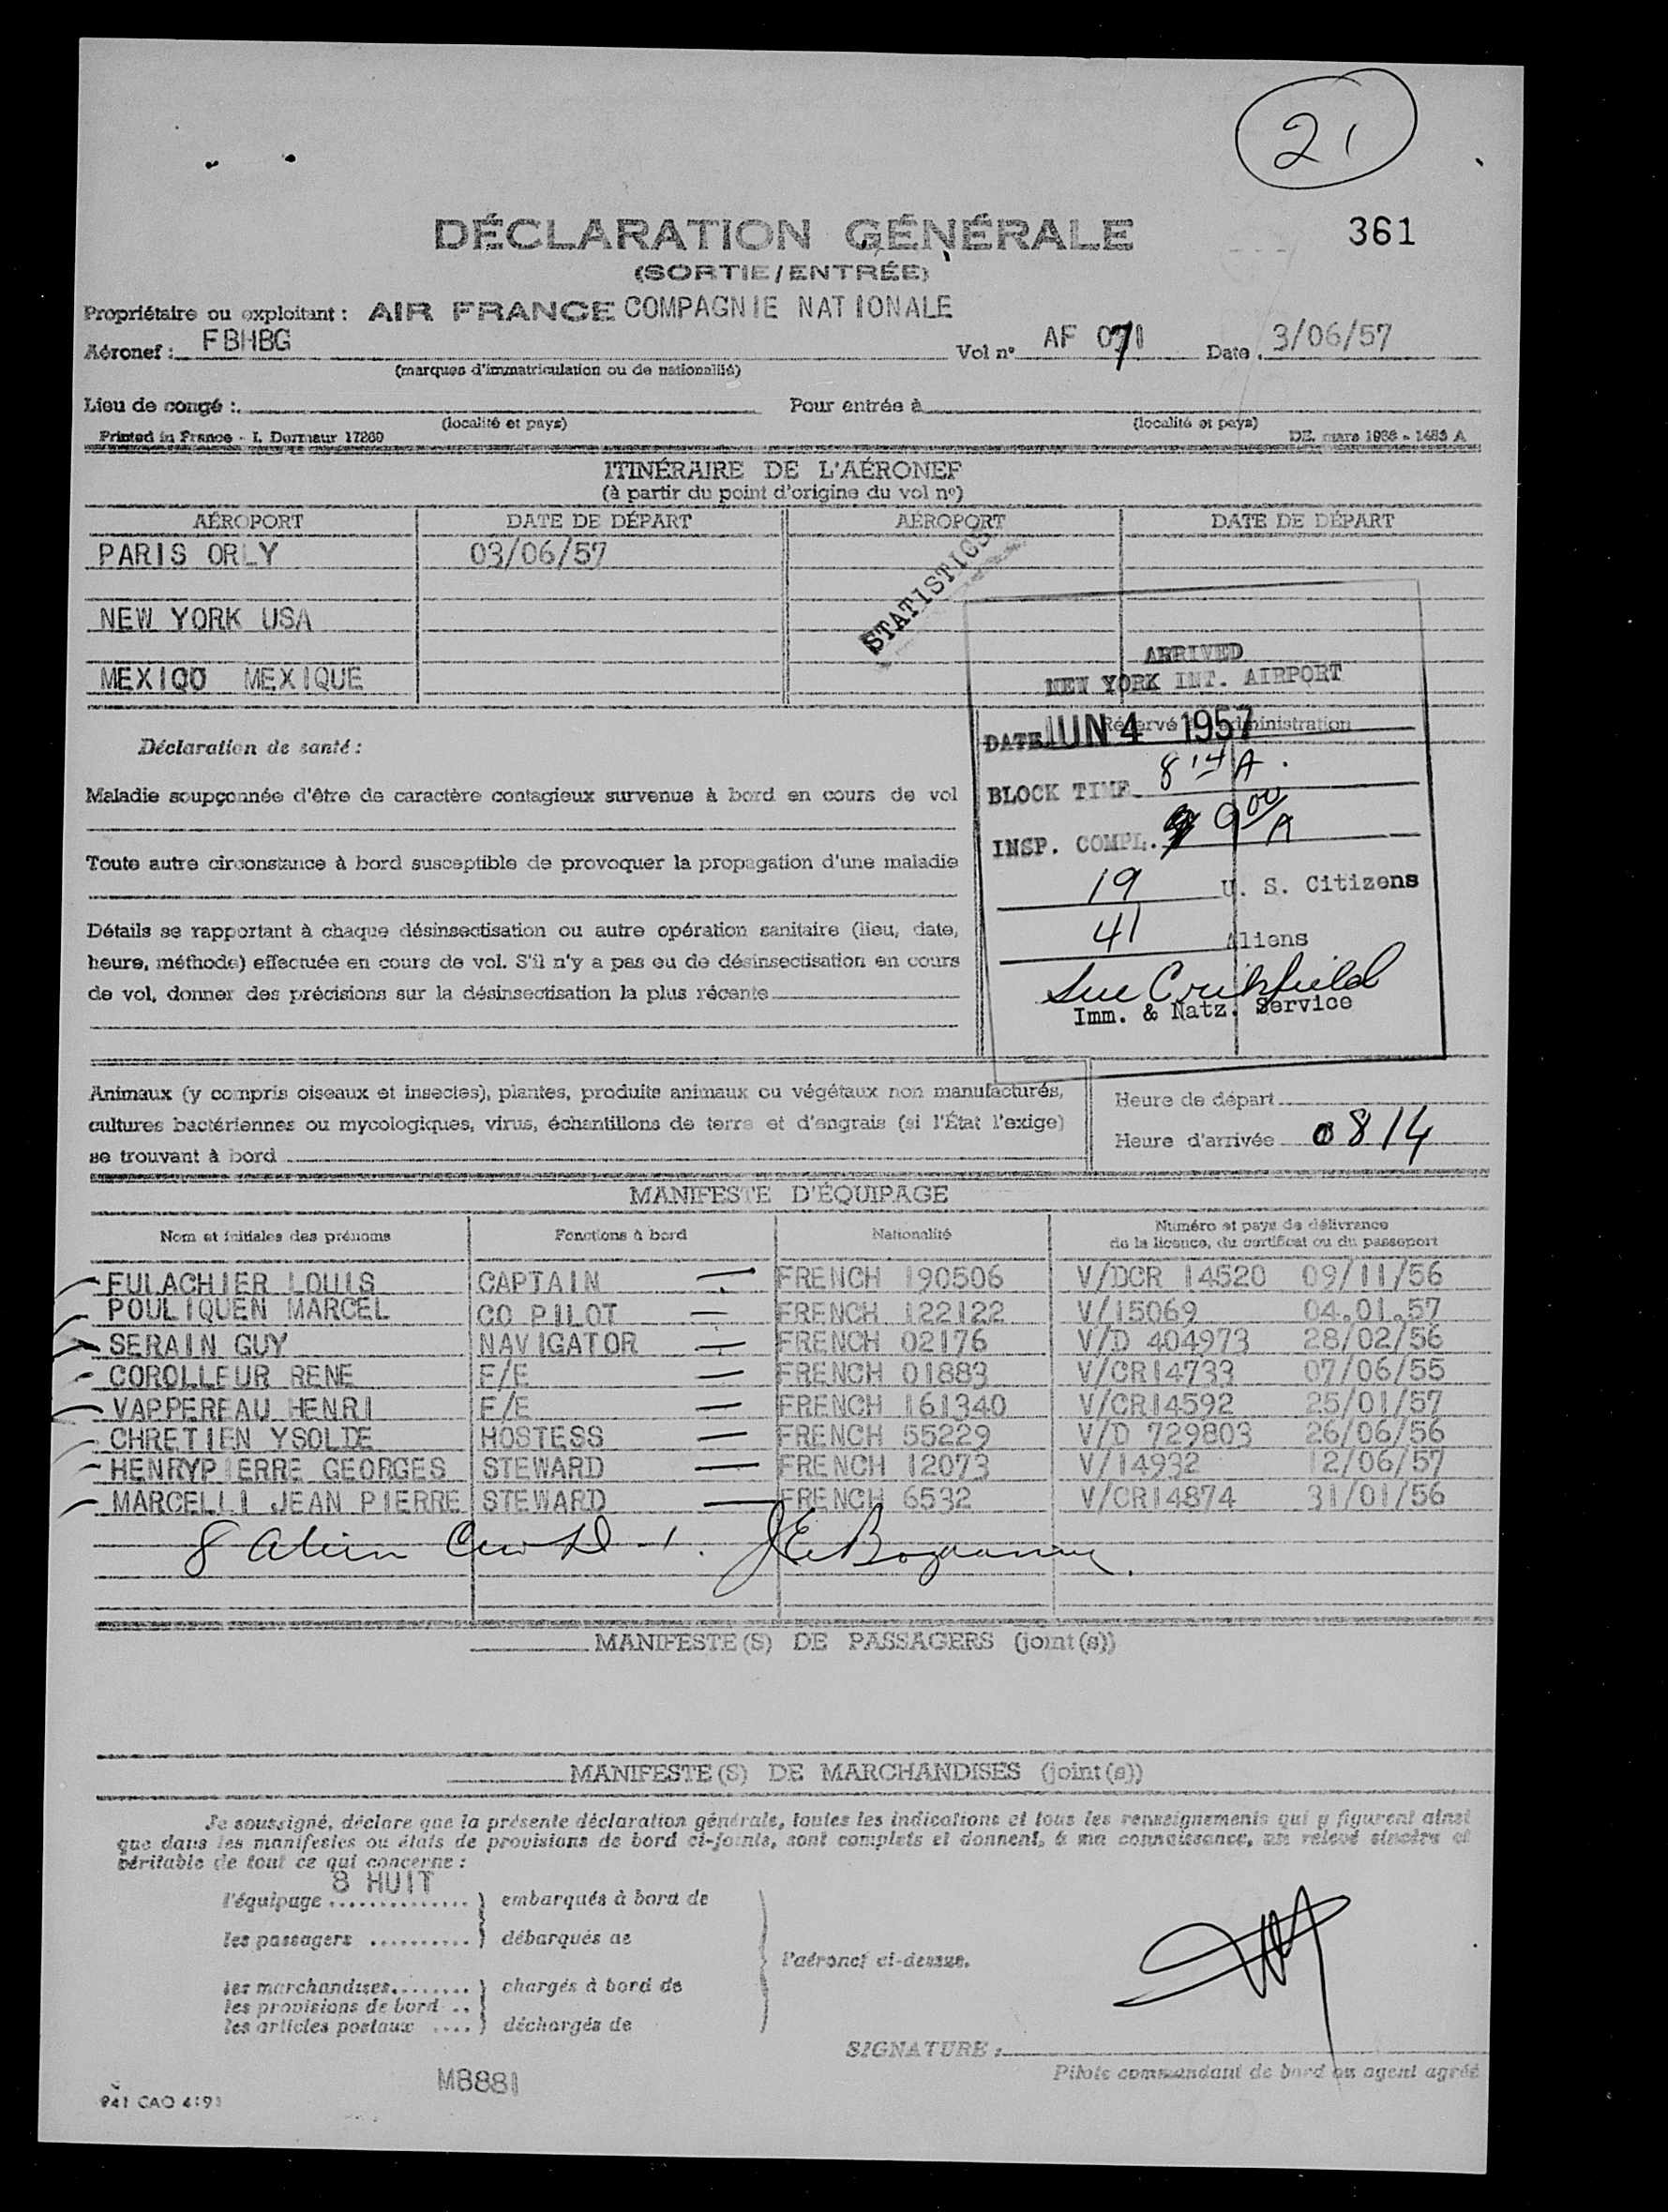 21
DÉCLARATION GÉNÉRALE
361
(SORTIE/ENTRÉE)
Propriétaire ou exploitant : AIR FRANCE COMPAGNIE NATIONALE
Aéronef : FBHBG Vol nº AF 071 Date 3/06/57
(marques d'immatriculation ou de nationalité)
Lieu de congé : Pour entrée à
(localité et pays) (localité et pays)
Printed in France - I. Dormeur 17260 DE. mars 1956 - 1483 A
ITINÉRAIRE DE L'AÉRONEF
(à partir du point d'origine du vol nº)
AÉROPORT DATE DE DÉPART AÉROPORT DATE DE DÉPART
PARIS ORLY 03/06/57
STATISTICS
NEW YORK USA
MEXICO MEXIQUE
ARRIVED
NEW YORK INT. AIRPORT
Réservé administration
DATE JUN 4 1957
BLOCK TIME 8 14 A.
INSP. COMPL. 9 00 A
19 U. S. Citizens
41 Aliens
Sue Critchfield
Imm. & Natz. Service
Déclaration de santé :
Maladie soupçonnée d'être de caractère contagieux survenue à bord en cours de vol
Toute autre circonstance à bord susceptible de provoquer la propagation d'une maladie
Détails se rapportant à chaque désinsectisation ou autre opération sanitaire (lieu, date,
heure, méthode) effectuée en cours de vol. S'il n'y a pas eu de désinsectisation en cours
de vol, donner des précisions sur la désinsectisation la plus récente
Animaux (y compris oiseaux et insectes), plantes, produits animaux ou végétaux non manufacturés,
cultures bactériennes ou mycologiques, virus, échantillons de terre et d'engrais (si l'État l'exige)
se trouvant à bord
Heure de départ
Heure d'arrivée 0814
MANIFESTE D'ÉQUIPAGE
Nom et initiales des prénoms Fonctions à bord Nationalité Numéro et pays de délivrance
de la licence, du certificat ou du passeport
FULACHIER LOUIS CAPTAIN FRENCH 190506 V/DCR 14520 09/11/56
POULIQUEN MARCEL CO PILOT FRENCH 122122 V/15069 04.01.57
SERAIN GUY NAVIGATOR FRENCH 02176 V/D 404973 28/02/56
COROLLEUR RENE F/E FRENCH 01883 V/CR14733 07/06/55
VAPPEREAU HENRI F/E FRENCH 161340 V/CR14592 25/01/57
CHRETIEN YSOLDE HOSTESS FRENCH 55229 V/D 729803 26/06/56
HENRYPIERRE GEORGES STEWARD FRENCH 12073 V/14932 12/06/57
MARCELLI JEAN PIERRE STEWARD FRENCH 6532 V/CR14874 31/01/56
8 Alien Crew D-1.
MANIFESTE(S) DE PASSAGERS (joint(s))
MANIFESTE(S) DE MARCHANDISES (joint(s))
Je soussigné, déclare que la présente déclaration générale, toutes les indications et tous les renseignements qui y figurent ainsi
que dans les manifestes ou états de provisions de bord ci-joints, sont complets et donnent, à ma connaissance, un relevé sincère et
véritable de tout ce qui concerne :
8 HUIT
l'équipage .............. } embarqués à bord de
les passagers .......... } débarqués de
l'aéronef ci-dessus.
les marchandises........ } chargés à bord de
les provisions de bord ..
les articles postaux .... } déchargés de
SIGNATURE :
Pilote commandant de bord ou agent agréé
M8881
941 CAO 4191